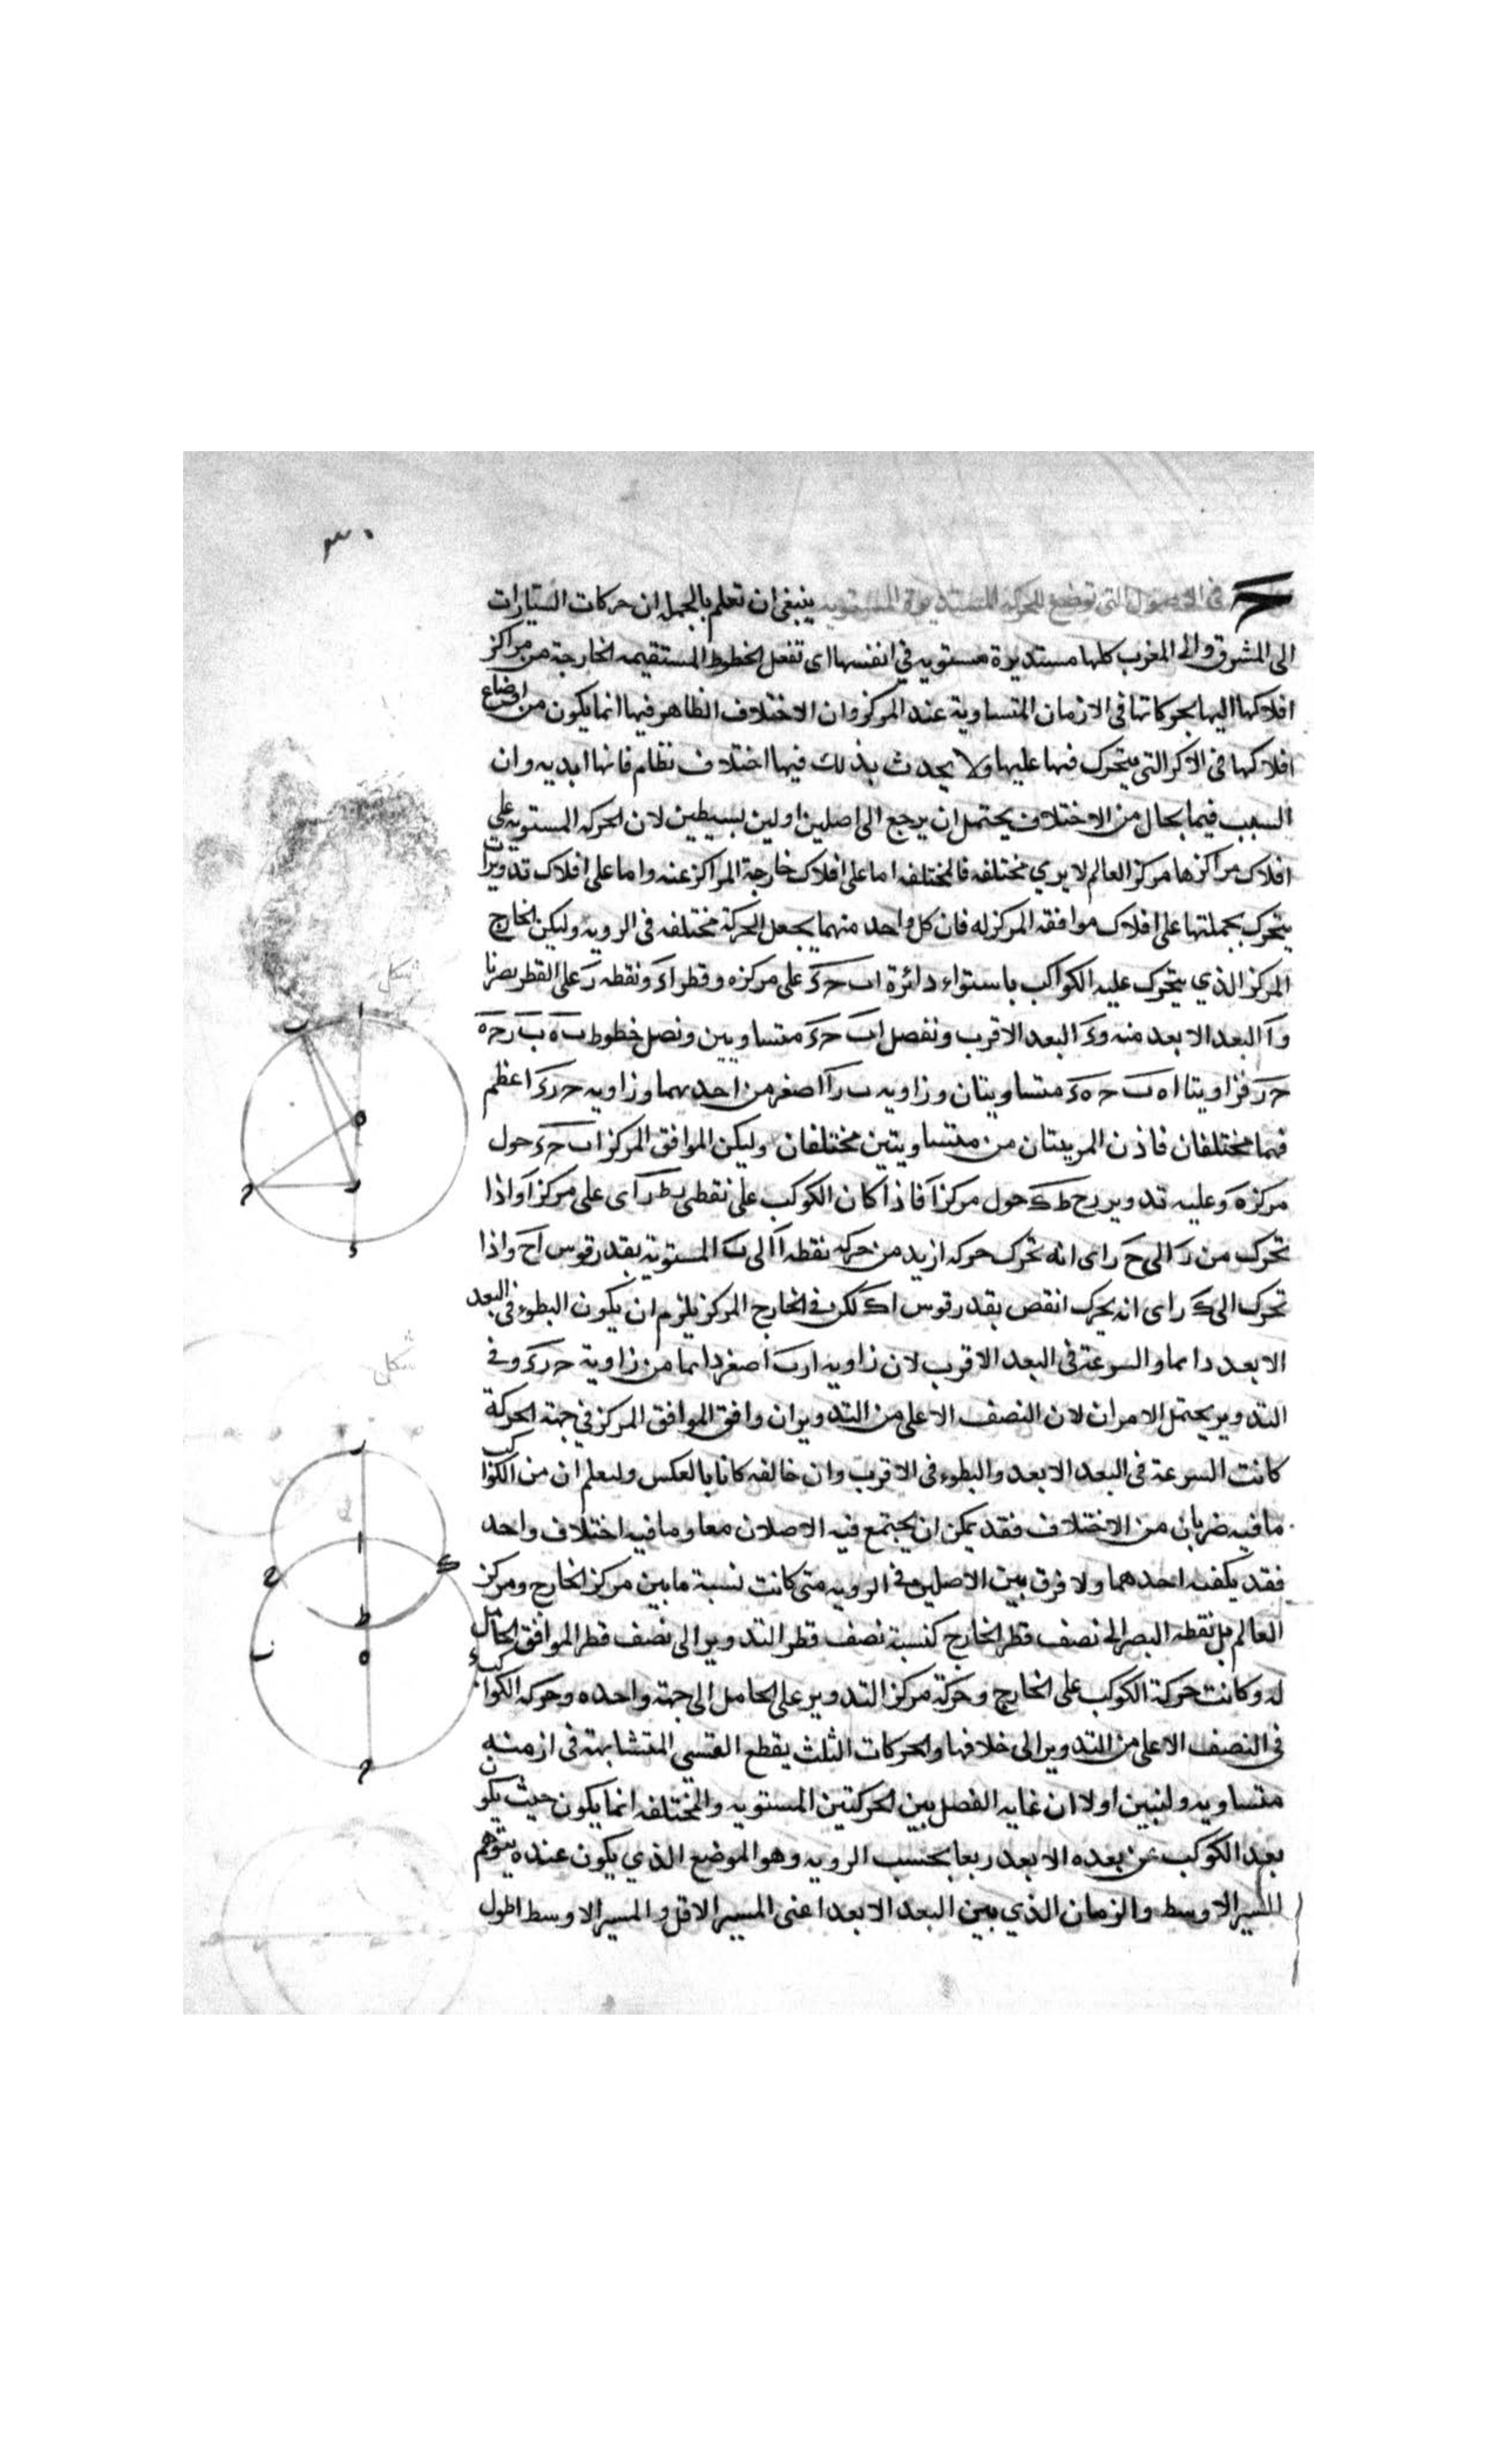 ٣٠
ج في الاصول التي توضع للحركة المستديرة المستوية ينبغي ان تعلم بالجمله ان حركات السيارات
الى المشرق والى المغرب كلها مستديرة مستويه في انفسها اى تفعل الخطوط المستقيمه الخارجة من مراكز
افلاكها اليها بحركاتها في الازمان المتساوية عند المركز وان الاختلاف الظاهر فيها انما يكون من اوضاع
افلاكها في الاكر التي يتحرك فيها عليها ولا يحدث بذلك فيها اختلاف نظام فانها ابديه وان
السبب فيما بحال من الاختلاف يحتمل ان يرجع الى اصلين اولين بسيطين لان الحركه المستويه على
افلاك مراكزها مركز العالم لا يري مختلفه فالمختلفه اما على افلاك خارجة المراكز عنه واما على افلاك تدويرات
يتحرك بجملتها على افلاك موافقه المركز له فان كل واحد منهما يجعل الحركة مختلفه في الرويه وليكن الخارج
المركز الذي يتحرك عليه الكواكب باستواء دائرة اب حء على مركزه وقطر اء ونقطه ر على القطر بصرنا
وا البعد الابعد منه وء البعد الاقرب ونفصل اب حء متساويين ونصل خطوط ب ه ب ر ح ه
ح ر فزاويتا ا ه ب ح ه ء متساويتان وزاويه ب ر ا اصغر من احديهما وزاويه ح ر ء اعظم
فهما مختلفان فاذن المريتان من متساويتين مختلفان وليكن الموافق المركز اب حء حول
مركز ه وعليه تدوير رح ط ك حول مركز ا فاذا كان الكوكب على نقطى ط ر اى على مركز ا واذا
تحرك من ر الى ح راى انه تحرك حركه ازيد من حركه نقطه ا الى ب المستوية بقدر قوس اح واذا
تحرك الى ك راى انه يحرك انقص بقدر قوس اك لكن في الخارج المركز يلزم ان يكون البطوء في البعد
الابعد دايما والسرعة في البعد الاقرب لان زاويه ارب اصغر دايما من زاوية ح ر ء وفي
التدوير يحتمل الامران لان النصف الاعلى من التدوير ان وافق الموافق المركز في جهة الحركة
كانت السرعة في البعد الابعد والبطوء في الاقرب وان خالفه كانا بالعكس وليعلم ان من الكواكب
ما فيه ضربان من الاختلاف فقد يمكن ان يجتمع فيه الاصلان معا وما فيه اختلاف واحد
فقد يكفيه احدهما ولا فرق بين الاصلين في الرويه متى كانت نسبة ما بين مركز الخارج ومركز
العالم بل نقطه البصر الى نصف قطر الخارج كنسبة نصف قطر التدوير الى نصف قطر الموافق الحامل
له وكانت حركة الكوكب على الخارج وحركة مركز التدوير على الحامل الى جهة واحده وحركه الكواكب
في النصف الاعلى من التدوير الى خلافها والحركات الثلث يقطع القسي المتشابهة في ازمنه
متساويه ولنبين اولا ان غايه الفصل بين الحركتين المستويه والمختلفه انما يكون حيث يكون
بعد الكوكب عن بعده الابعد ربعا بحسب الرويه وهو الموضع الذي يكون عنده يتوهم
المسير الاوسط والزمان الذي بين البعد الابعد اعنى المسير الاقل والمسير الاوسط اطول
شكل
ا
ب
ه
ح
ر
ء
شكل
ر
ا
ك
ح
ط
ب
ه
ء
ح